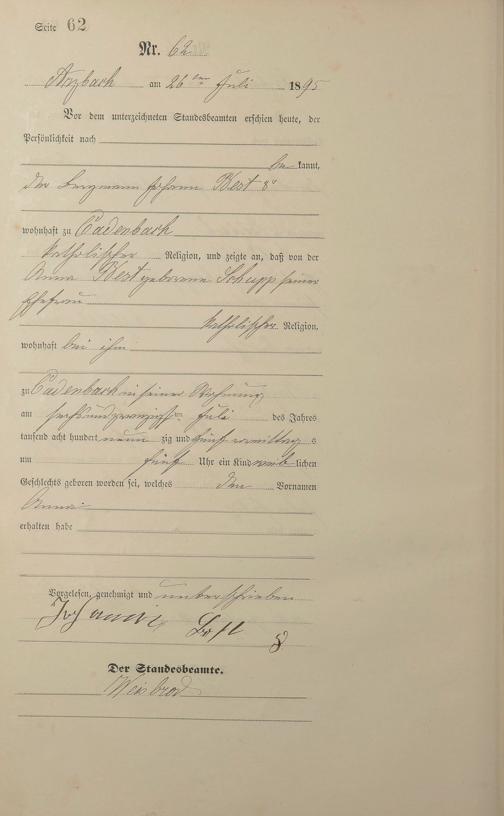 Seite 62
Nr. 62
Arzbach am 26ten Juli 1895
Vor dem unterzeichneten Standesbeamten erschien heute, der
Persönlichkeit nach
be kannt,
der Bergmann Johann Best 8r
wohnhaft zu Cadenbach
katholischer Religion, und zeigte an, daß von der
Anna Best geborene Schupp seiner
Ehefrau
katholischer Religion,
wohnhaft bei ihm
zu Cadenbach in seiner Wohnung
am sechsundzwanzigsten Juli des Jahres
tausend acht hundert neun zig und fünf vormittag s
um fünf Uhr ein Kind weib lichen
Geschlechts geboren worden sei, welches den Vornamen
Anna
erhalten habe
Vorgelesen, genehmigt und unterschrieben
Johann Best 8
Der Standesbeamte.
Weisbrod